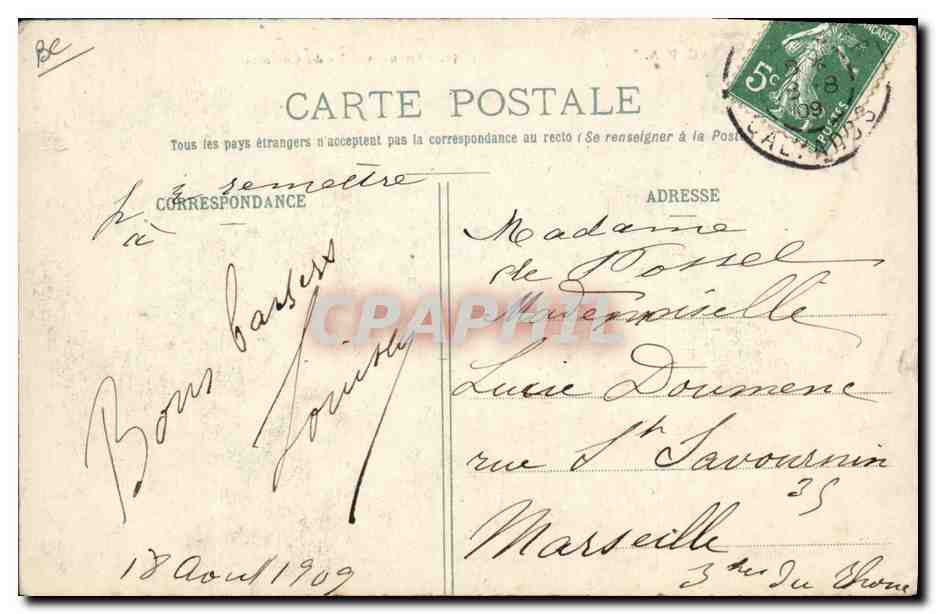 BC
FRANÇAISE
5c
POSTES
8
09
CALVADOS
CARTE POSTALE
Tous les pays étrangers n'acceptent pas la correspondance au recto (Se renseigner à la Poste
p à remettre
à
CORRESPONDANCE
Bons baisers
18 Aout 1909
ADRESSE
Madame
de Possel
Mademoiselle
Lucie Doumenc
rue St Savournin
35
Marseille
Bches du Rhone
CPAPHIL